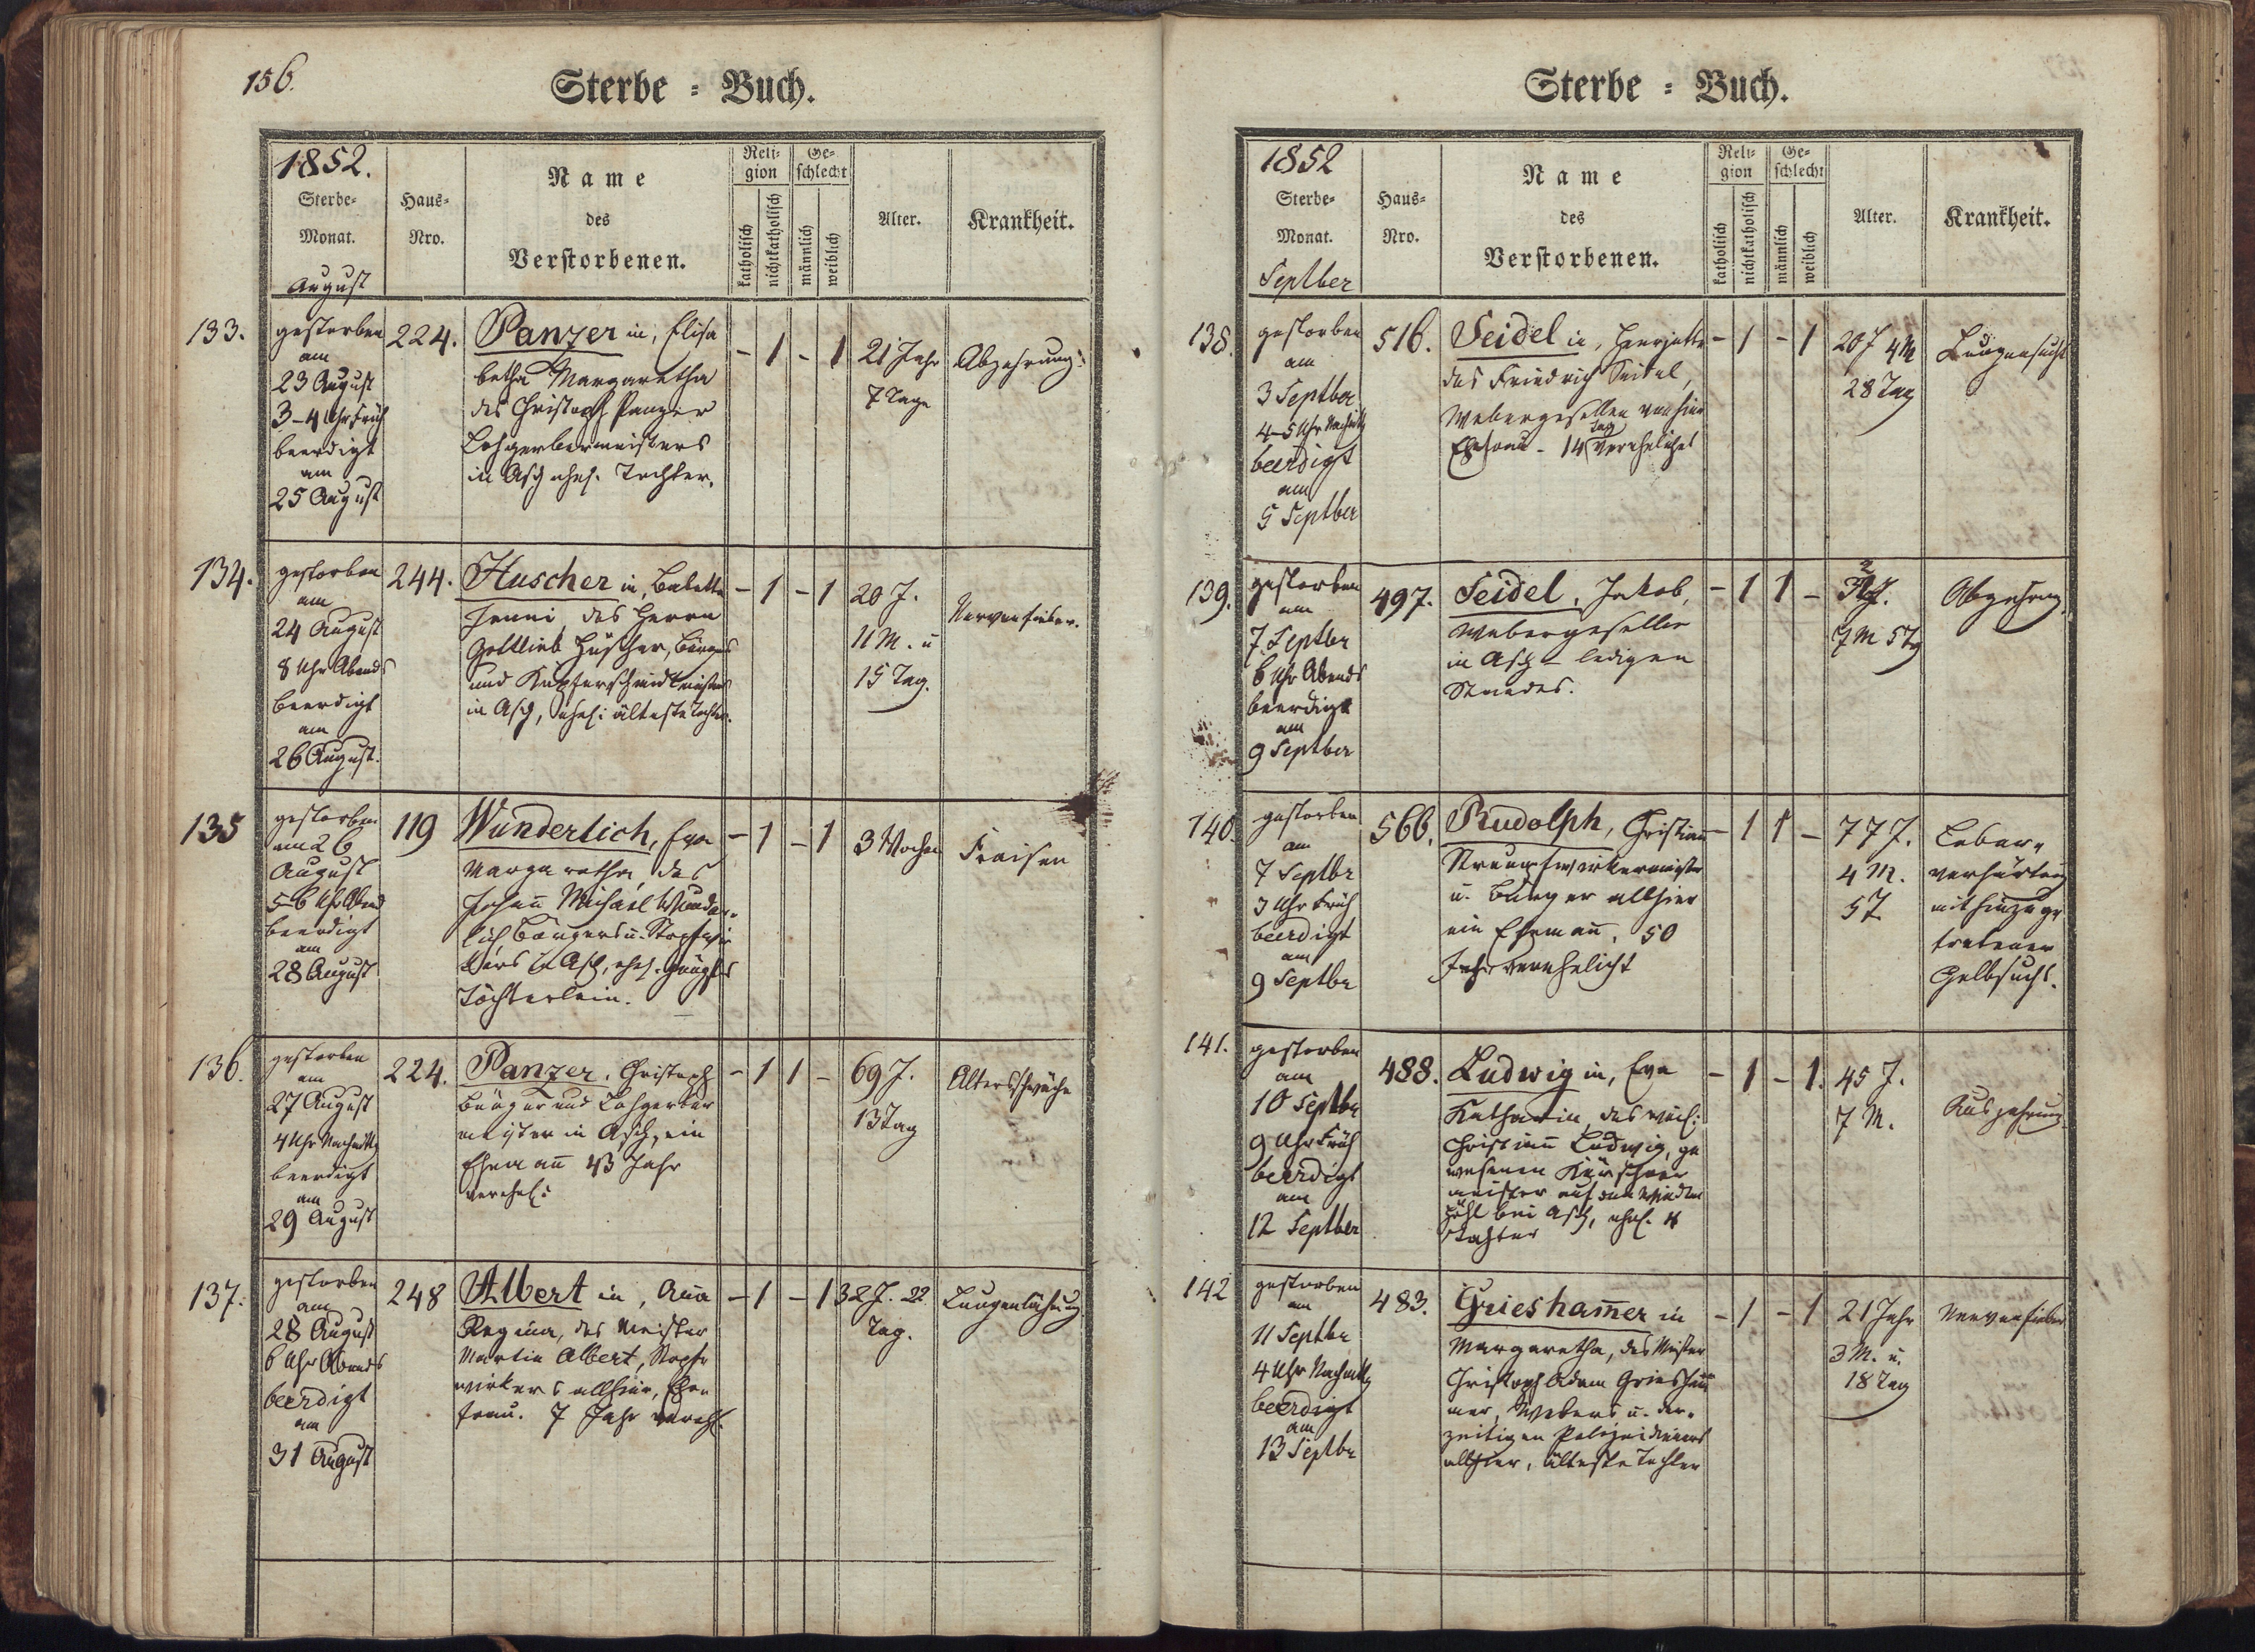 156.
Sterbe = Buch.
1852.
Sterbe-
Monat.
August
Haus-
Nro.
Name
des
Verstorbenen.
Reli-
gion
katholisch
nichtkatholisch
Ge-
schlecht
männlich
weiblich
Alter.
Krankheit.
133.
gestorben
am
23 August
3-4 Uhr Früh
beerdigt
am
25 August
224.
Panzer in, Elisa
betha Margaretha
des Christoph Panzer
Lohgerbermeisters
in Asch ehel. Tochter.
- 1 - 1
21 Jahr
7 Tage
Abzehrung.
134.
gestorben
am
24 August
8 Uhr Abends
beerdigt
am
26 August.
244.
Huscher in, Babette
Jenni, des Herrn
Gottlieb Huscher, Bürgers
und Kupferschmidtmeisters
in Asch, ehel: älteste Tochter.
- 1 - 1
20 J.
11 M. u
15 Tag.
Nervenfieber.
135
gestorben
am 26
August
5-6 Uhr Abend
beerdigt
am
28 August
119
Wunderlich, Eva
Margaretha, des
Johann Michael Wunder-
lich Bürgers u. Strpfwir
kers in Asch, ehel.
Töchterlein.
- 1 - 1
3 Wochen
Fraisen
136.
gestorben
am
27 August
4 Uhr Nachmittg
beerdigt
am
29 August
224.
Panzer, Christoph
Bürger und Lohgerber
meister in Asch, ein
Ehemañ 43 Jahr
verehel:
- 1 1 -
69 J.
13 Tag
Altersschwäche
137.
gestorben
am
28 August
6 Uhr Abends
beerdigt
am
31 August
248
Albert in, Aña
Regina, des Meister
Martin Albert, Strpf
wirkers allhier, Ehe
frau. 7 Jahr verehl.
- 1 - 1
32 J. 22.
Tag.
Lungenlähmung
Sterbe = Buch.
1852
Sterbe-
Monat.
Septber
Haus-
Nro.
Name
des
Verstorbenen.
Reli-
gion
katholisch
nichtkatholisch
Ge-
schlecht
männlich
weiblich
Alter.
Krankheit.
138.
gestorben
am
3 Septber
4-5 Uhr Nachmittg
beerdigt
am
5 Septber
516.
Seidel in, Henrjette
des Friedrich Seidel,
Webergesellen von hier
Ehefrau - 14 Tag verehelichet
- 1 - 1
20 J 4 M
28 Tag
Lungensucht
139.
gestorben
am
7 Septber
6 Uhr Abends
beerdigt
am
9 Septber
497.
Seidel, Jakob,
Webergeselle
in Asch - ledigen
Standes.
- 1 1 -
7 M 5 Tg
Abzehrung.
140.
gestorben
am
7 Septbr
3 Uhr Früh
beerdigt
am
9 Septbr
566.
Rudolph, Christian
Strumpfwirkermeister
u. Bürger allhier
ein Ehemañ, 50
Jahr verehelicht
- 1 1 -
77 J.
4 M.
5 T
Leber-
verhärtung
mit hinzuge
tretener
Gelbsucht.
141.
gestorben
am
10 Septbr
9 Uhr Früh
beerdigt
am
12 Septber
488.
Ludwig in, Eva
Katharin, des weil:
Christian Ludwig, ge
wesenen Kürschner
meister auf dem
bei Asch, ehel.
Tochter
- 1 - 1.
45 J.
7 M.
Auszehrung
142
gestorben
am
11 Septbr
4 Uhr Nachmittg
beerdigt
am
13 Septbr
483.
Griesham̄er in
Margaretha, des Meister
Christoph Adam Griesham̄
mer, Webers u. der-
zeitigen Polizeidieners
allhier, älteste Tochter
- 1 - 1
21 Jahr
3 M. u.
18 Tag
Nervenfieber